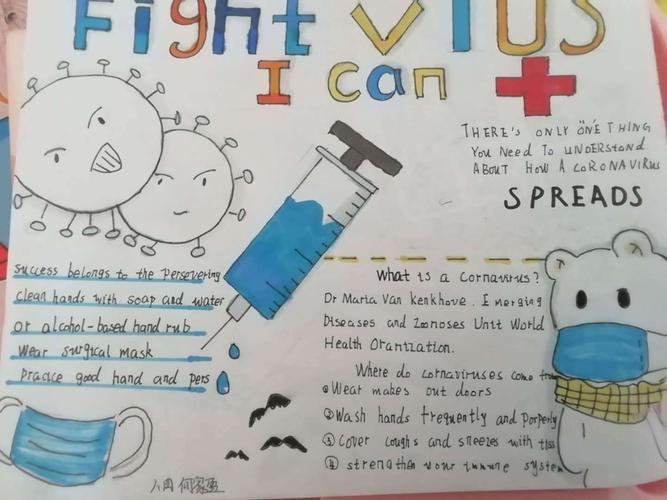 Fight VIUS
I can
THERE'S ONLY ONE THING
YOU NEED TO UNDERSTAND
ABOUT HOW A CORONAVIRUS
SPREADS
success belongs to the persevering
clean hands with soap and water
or alcohol-based hand rub
Wear surgical mask
practice good hand and pers
What is a Cornavirus?
Dr Maria Van Kenkhove. Emerging
Diseases and Zoonoses Unit World
Health Orantzation.
Where do cornaviruses come from
①Wear makes out doors
②Wash hands frequently and porperly
③cover coughs and sneezes with tiss
④strengthen your immune system
何家